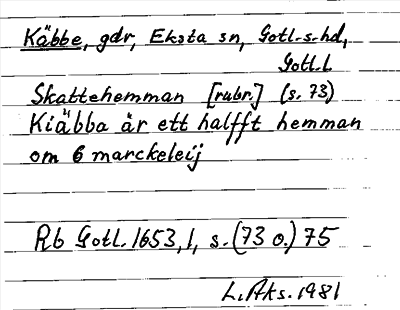 Käbbe, gdr, Eksta sn, Gotl. s. hd,
Gotl. l
Skattehemman [rubr.] (s. 73)
Kiäbba är ett halfft hemman
om 6 marckeleij
Rb Gotl. 1653, 1, s. (73 o.) 75
L. Aks. 1981